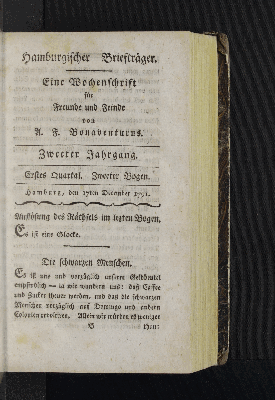 Hamburgischer Briefträger.
Eine Wochenschrift
für
Freunde und Feinde
von
A. F. Bonaventurus.
Zweeter Jahrgang.
Erstes Quartal. Zweeter Bogen.
Hamburg, den 17ten December 1791.
Auflösung des Räthsels im lezten Bogen.
Es ist eine Glocke.
Die schwarzen Menschen.
Es ist uns und vorzüglich unserm Geldbeutel
empfindlich — ja wir wundern uns: daß Caffee
und Zucker theuer werden, und daß die schwarzen
Menschen vorzüglich auf Domingo und andern
Colonien revoltiren. Allein wir würden es weniger
B
thun: